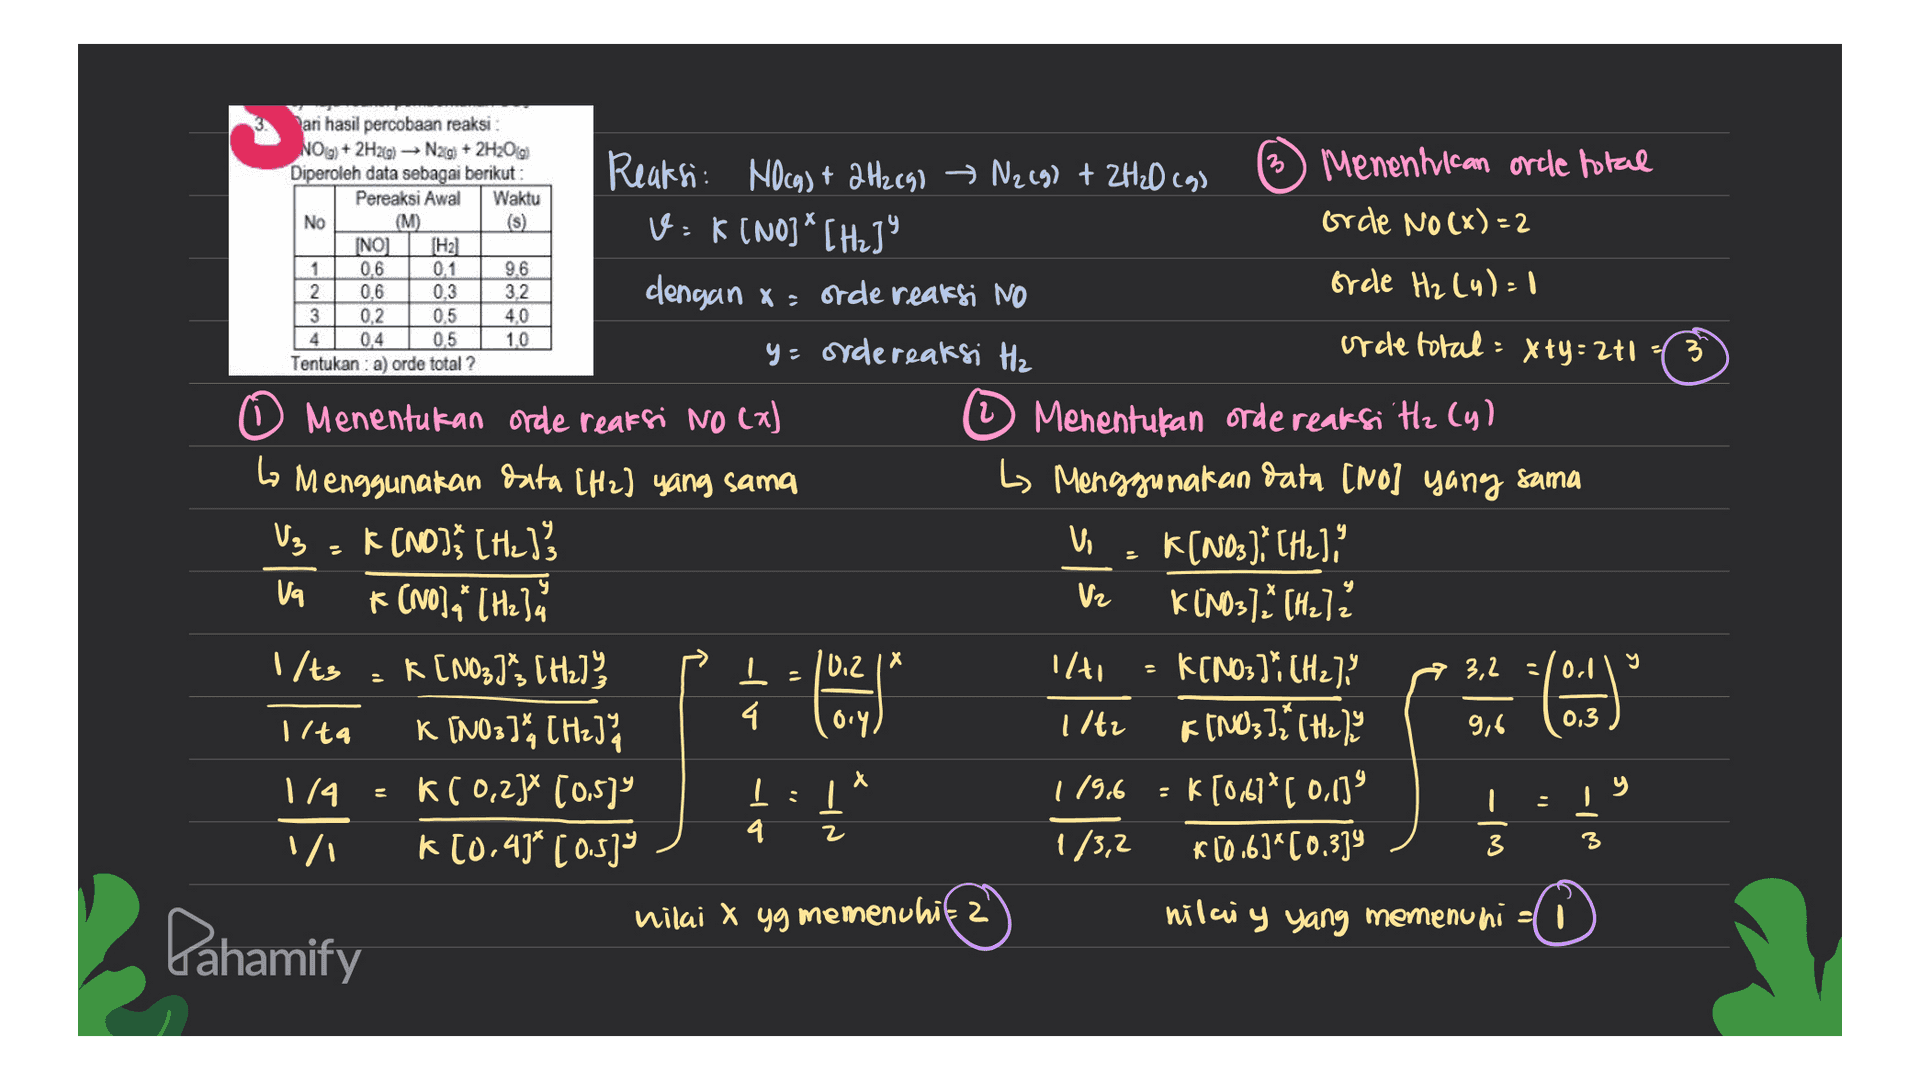 3. Dari hasil percobaan reaksi :
NO(g) + 2H2(g) → N2(g) + 2H2O(g)
Diperoleh data sebagai berikut :
No Pereaksi Awal (M) Waktu (s)
[NO] [H2]
1 0,6 0,1 9,6
2 0,6 0,3 3,2
3 0,2 0,5 4,0
4 0,4 0,5 1,0
Tentukan : a) orde total ?
Reaksi : NO(g) + 2H2(g) → N2(g) + 2H2O(g)
v = k [NO]^x [H2]^y
dengan x = orde reaksi NO
y = orde reaksi H2
① Menentukan orde reaksi NO (x)
↳ Menggunakan data [H2] yang sama
V3/V4 = k [NO]3^x [H2]3^y / k [NO]4^x [H2]4^y
1/t3 / 1/t4 = k [NO3]3^x [H2]3^y / k [NO3]4^x [H2]4^y
1/4 / 1/1 = k [0,2]^x [0,5]^y / k [0,4]^x [0,5]^y
1/4 = (0,2/0,4)^x
1/4 = 1/2^x
nilai x yg memenuhi = 2
② Menentukan orde reaksi H2 (y)
↳ Menggunakan data [NO] yang sama
V1/V2 = k [NO3]1^x [H2]1^y / k [NO3]2^x [H2]2^y
1/t1 / 1/t2 = k [NO3]1^x [H2]1^y / k [NO3]2^x [H2]2^y
1/9,6 / 1/3,2 = k [0,6]^x [0,1]^y / k [0,6]^x [0,3]^y
3,2/9,6 = (0,1/0,3)^y
1/3 = 1/3^y
nilai y yang memenuhi = 1
③ Menentukan orde total
orde NO (x) = 2
orde H2 (y) = 1
orde total = x+y = 2+1 = 3
Pahamify